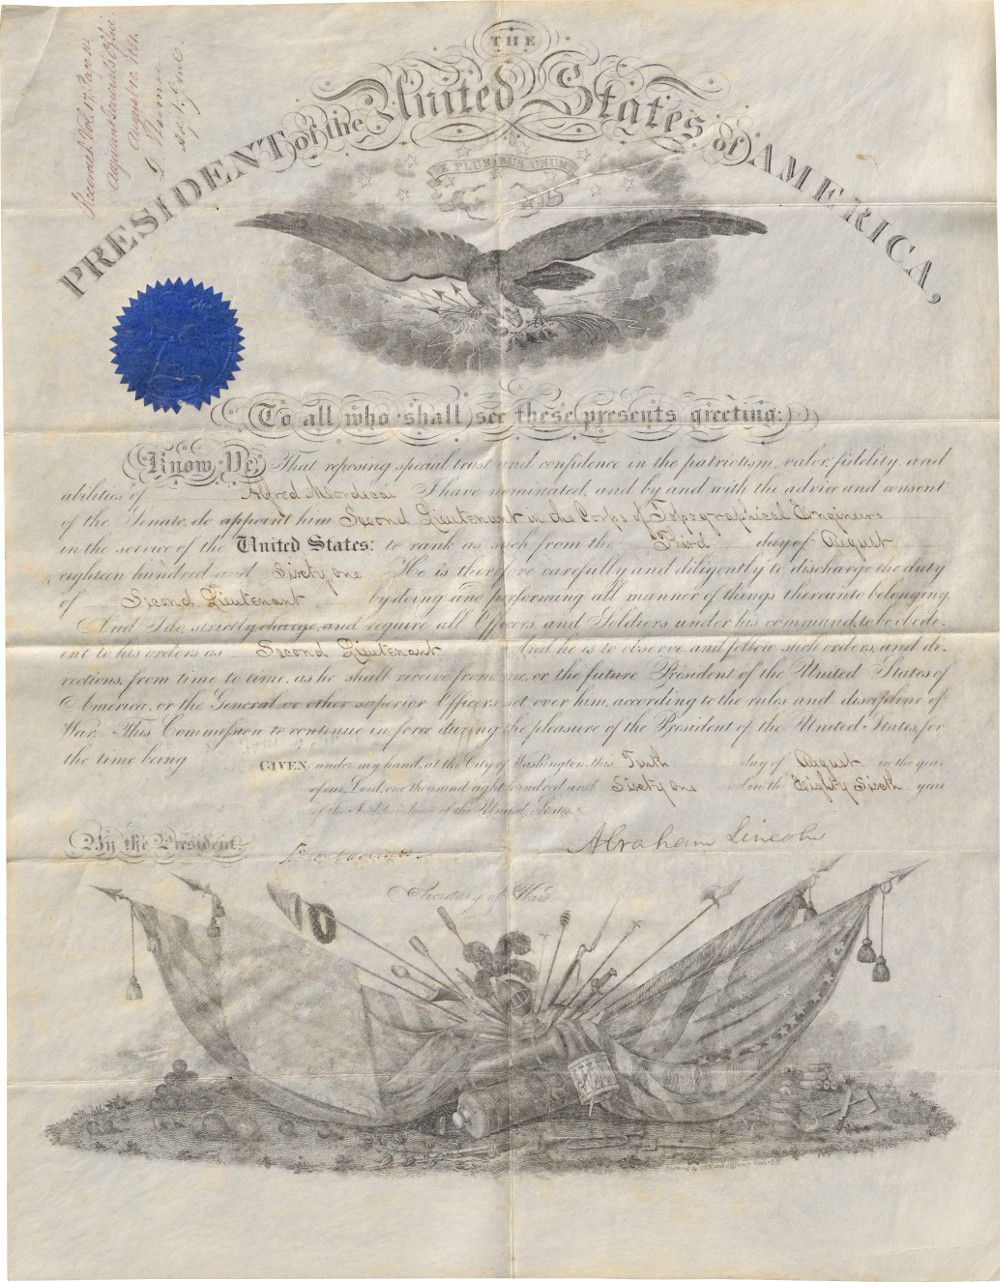 THE
PRESIDENT of the United States of AMERICA,
E PLURIBUS UNUM
To all who shall see these presents greeting:
Know Ye, That reposing special trust and confidence in the patriotism, valor, fidelity, and
abilities of Alfred Mordecai I have nominated, and by and with the advice and consent
of the Senate, do appoint him Second Lieutenant in the Corps of Topographical Engineers
in the service of the United States: to rank as such from the Third day of August
eighteen hundred and Sixty one He is therefore carefully and diligently to discharge the duty
of Second Lieutenant by doing and performing all manner of things thereunto belonging.
And I do strictly charge, and require all Officers and Soldiers under his command, to be obedi-
ent to his orders as Second Lieutenant And he is to observe and follow such orders, and di-
rections, from time to time, as he shall receive from me, or the future President of the United States of
America, or the General or other superior Officers set over him, according to the rules and discipline of
War. This Commission to continue in force during the pleasure of the President of the United States, for
the time being
GIVEN under my hand, at the City of Washington, this Tenth day of August in the year
of our Lord, one thousand eight hundred and Sixty one and in the Eighty Sixth year
of the Independence of the United States.
By the President.
Abraham Lincoln
Secretary of War
Adjutant General's Office
August 1861.